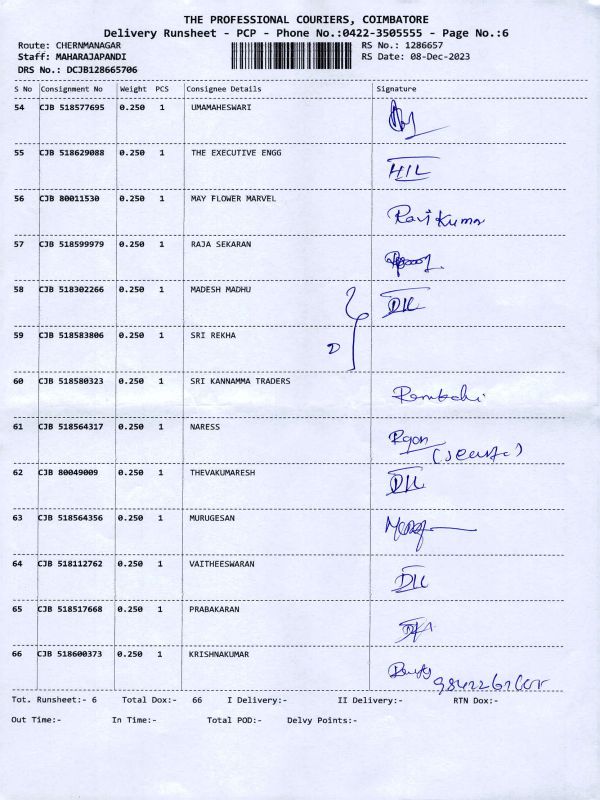 THE PROFESSIONAL COURIERS, COIMBATORE
Delivery Runsheet - PCP - Phone No.:0422-3505555 - Page No.:6
Route: CHERNMANAGAR RS No.: 1286657
Staff: MAHARAJAPANDI RS Date: 08-Dec-2023
DRS No.: DCJB128665706
S No Consignment No Weight PCS Consignee Details Signature
54 CJB 518577695 0.250 1 UMAMAHESWARI
55 CJB 518629088 0.250 1 THE EXECUTIVE ENGG HIL
56 CJB 80011530 0.250 1 MAY FLOWER MARVEL Ravi Kumar
57 CJB 518599979 0.250 1 RAJA SEKARAN
58 CJB 518302266 0.250 1 MADESH MADHU
59 CJB 518583806 0.250 1 SRI REKHA D
60 CJB 518580323 0.250 1 SRI KANNAMMA TRADERS
61 CJB 518564317 0.250 1 NARESS
62 CJB 80049009 0.250 1 THEVAKUMARESH
63 CJB 518564356 0.250 1 MURUGESAN
64 CJB 518112762 0.250 1 VAITHEESWARAN
65 CJB 518517668 0.250 1 PRABAKARAN
66 CJB 518600373 0.250 1 KRISHNAKUMAR
Tot. Runsheet:- 6 Total Dox:- 66 I Delivery:- II Delivery:- RTN Dox:-
Out Time:- In Time:- Total POD:- Delvy Points:-